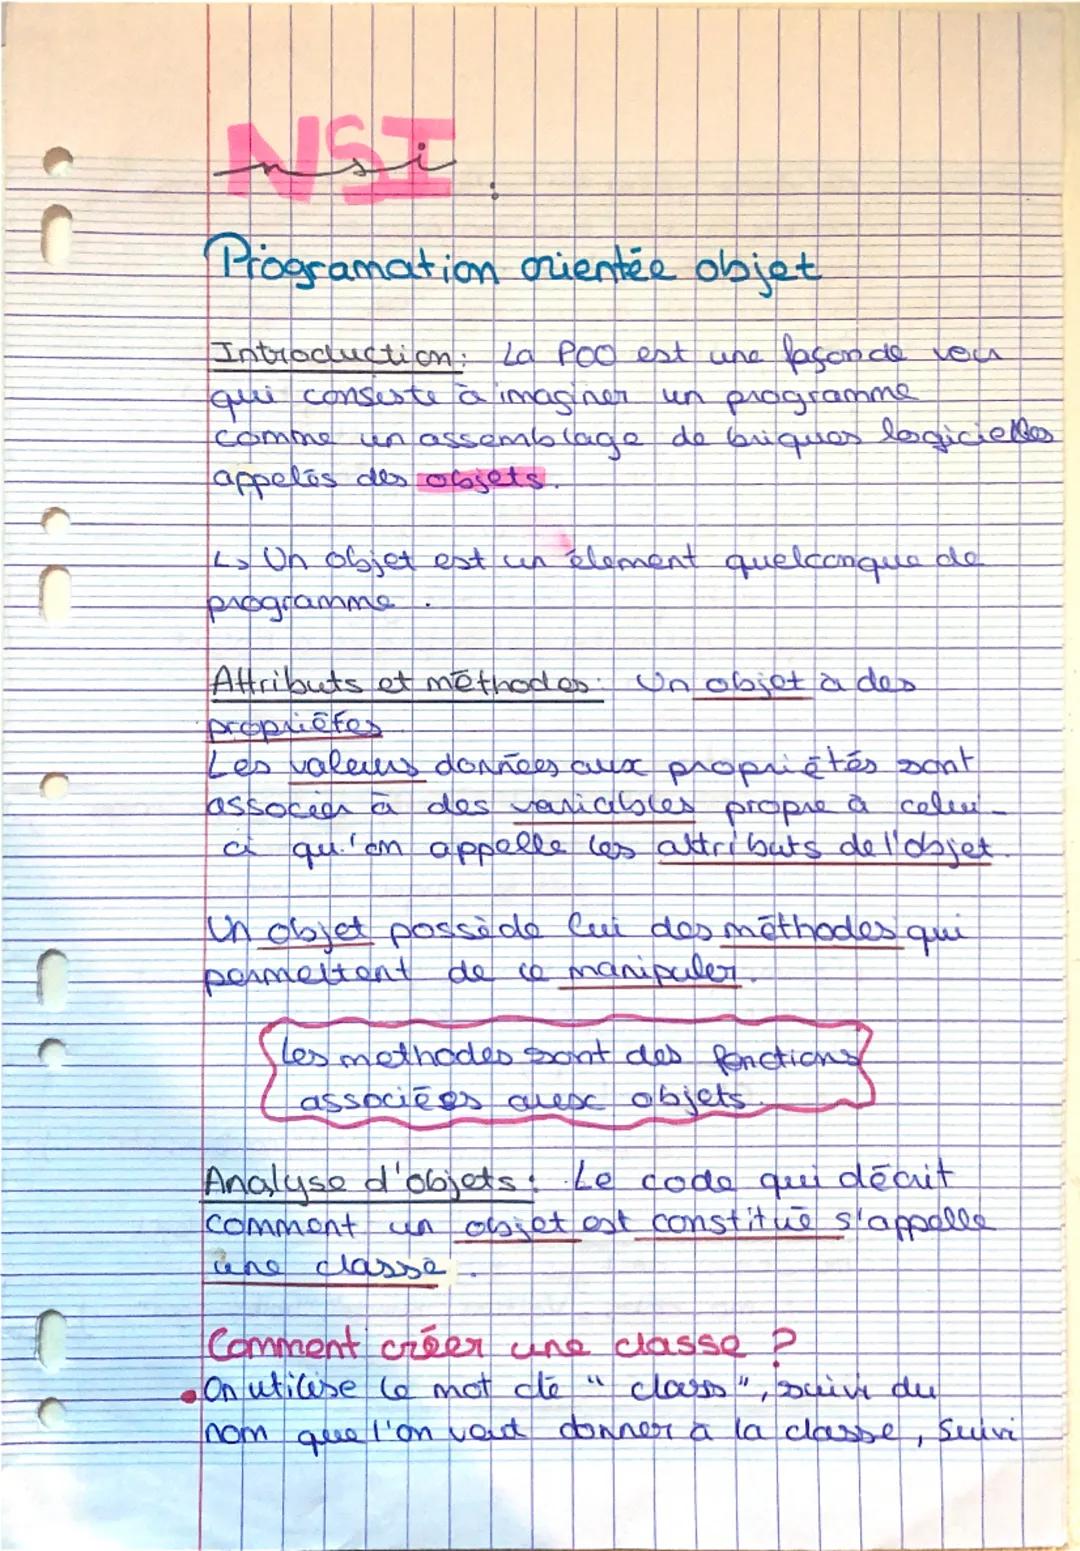 NSI
nsi :
Programation orientée objet
Introduction : La POO est une façon de voir
qui consiste à imaginer un programme
comme un assemblage de briques logicielles
appelés des objets.
↳ Un objet est un élement quelconque de
programme.
Attributs et méthodes : Un objet à des
propriétés
Les valeurs données aux propriétés sont
associer à des variables propre à celui-
ci qu'on appelle les attributs de l'objet.
Un objet possède lui des méthodes qui
permettent de le manipuler.
Les methodes sont des fonctions
associées aux objets.
Analyse d'objets : Le code qui décrit
comment un objet est constitué s'appelle
une classe.
Comment créer une classe ?
• On utilise le mot clé "class", suivi du
nom que l'on veut donner à la classe, suivi